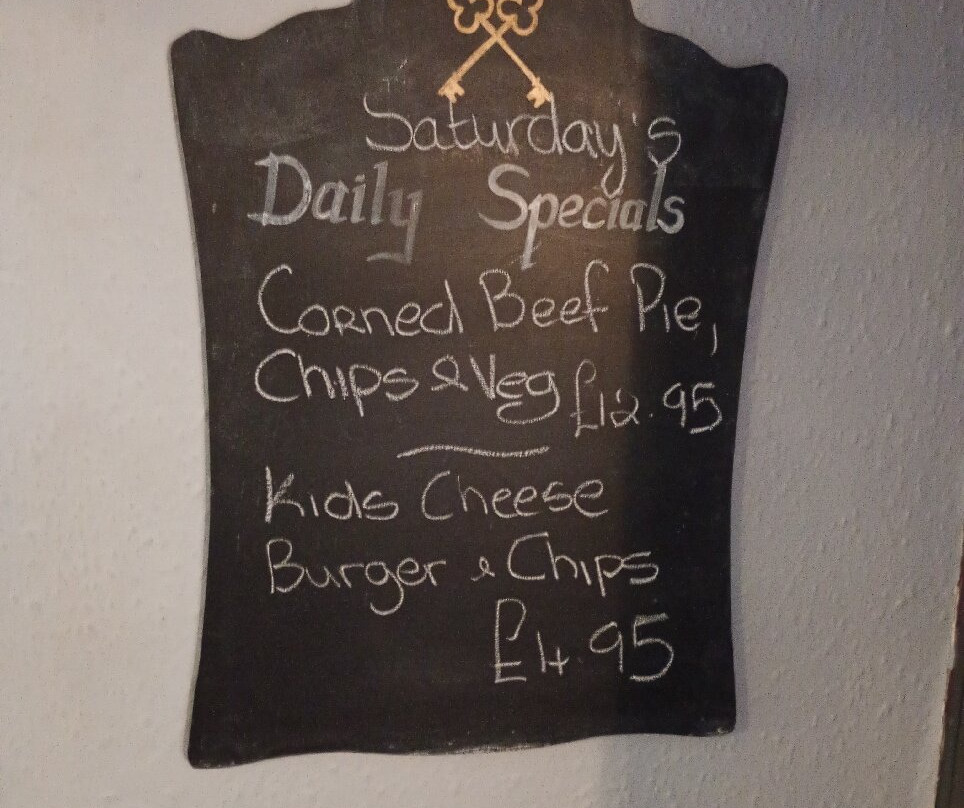 Saturday's
Daily Specials
Corned Beef Pie,
Chips & Veg £12.95
Kids Cheese
Burger & Chips
£4.95